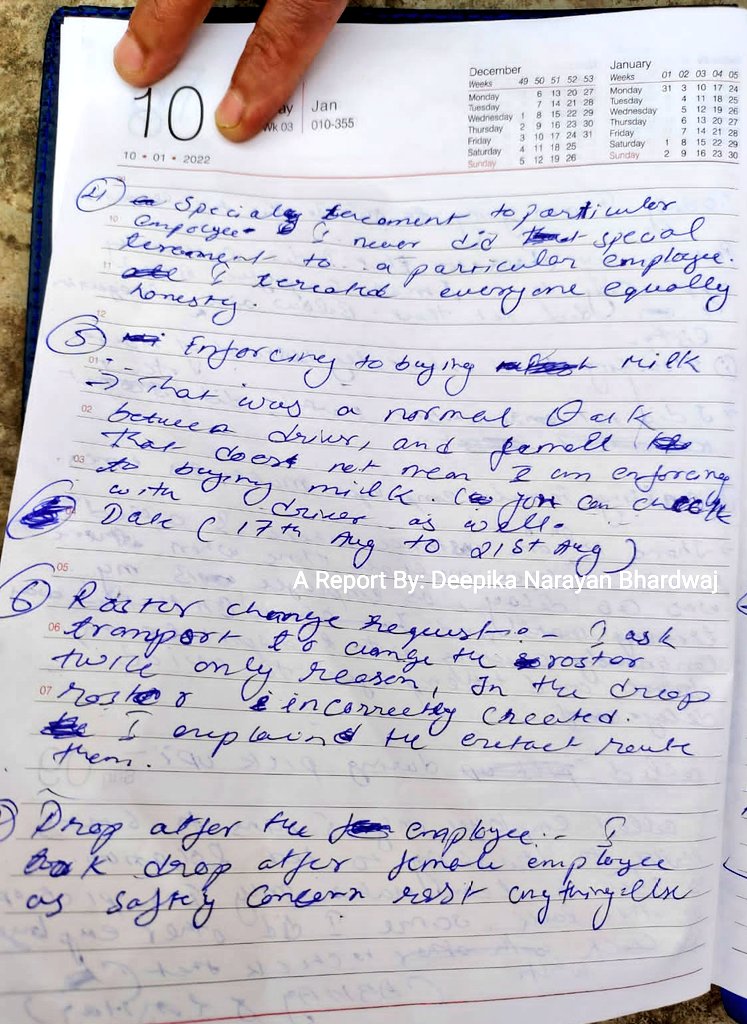 10
ay
Jan
Wk 03
010-355
10 • 01 • 2022
December
Weeks 49 50 51 52 53
Monday 6 13 20 27
Tuesday 7 14 21 28
Wednesday 1 8 15 22 29
Thursday 2 9 16 23 30
Friday 3 10 17 24 31
Saturday 4 11 18 25
Sunday 5 12 19 26
January
Weeks 01 02 03 04 05
Monday 31 3 10 17 24
Tuesday 4 11 18 25
Wednesday 5 12 19 26
Thursday 6 13 20 27
Friday 7 14 21 28
Saturday 1 8 15 22 29
Sunday 2 9 16 23 30
4) Specialy tereament to particuler
10 empolyee I never did special
terement to a particular employee.
11 I tereated everyone equally
honesty.
12
5) Enforcing to buying milk
01 → That was a normal talk
02 between driver, and femall
that does not mean I am enforcing
03 to buying milk you can check
with driver as well.
Date (17th Aug to 21st Aug)
05
A Report By: Deepika Narayan Bhardwaj
6) Roster change Request:- I ask
06 transport to change the roster
twice only reason, In the drop
07 roster incorrectly created.
I explained the route
them.
Drop after the employee:- I
drop after female employee
as safty concern rest anything else